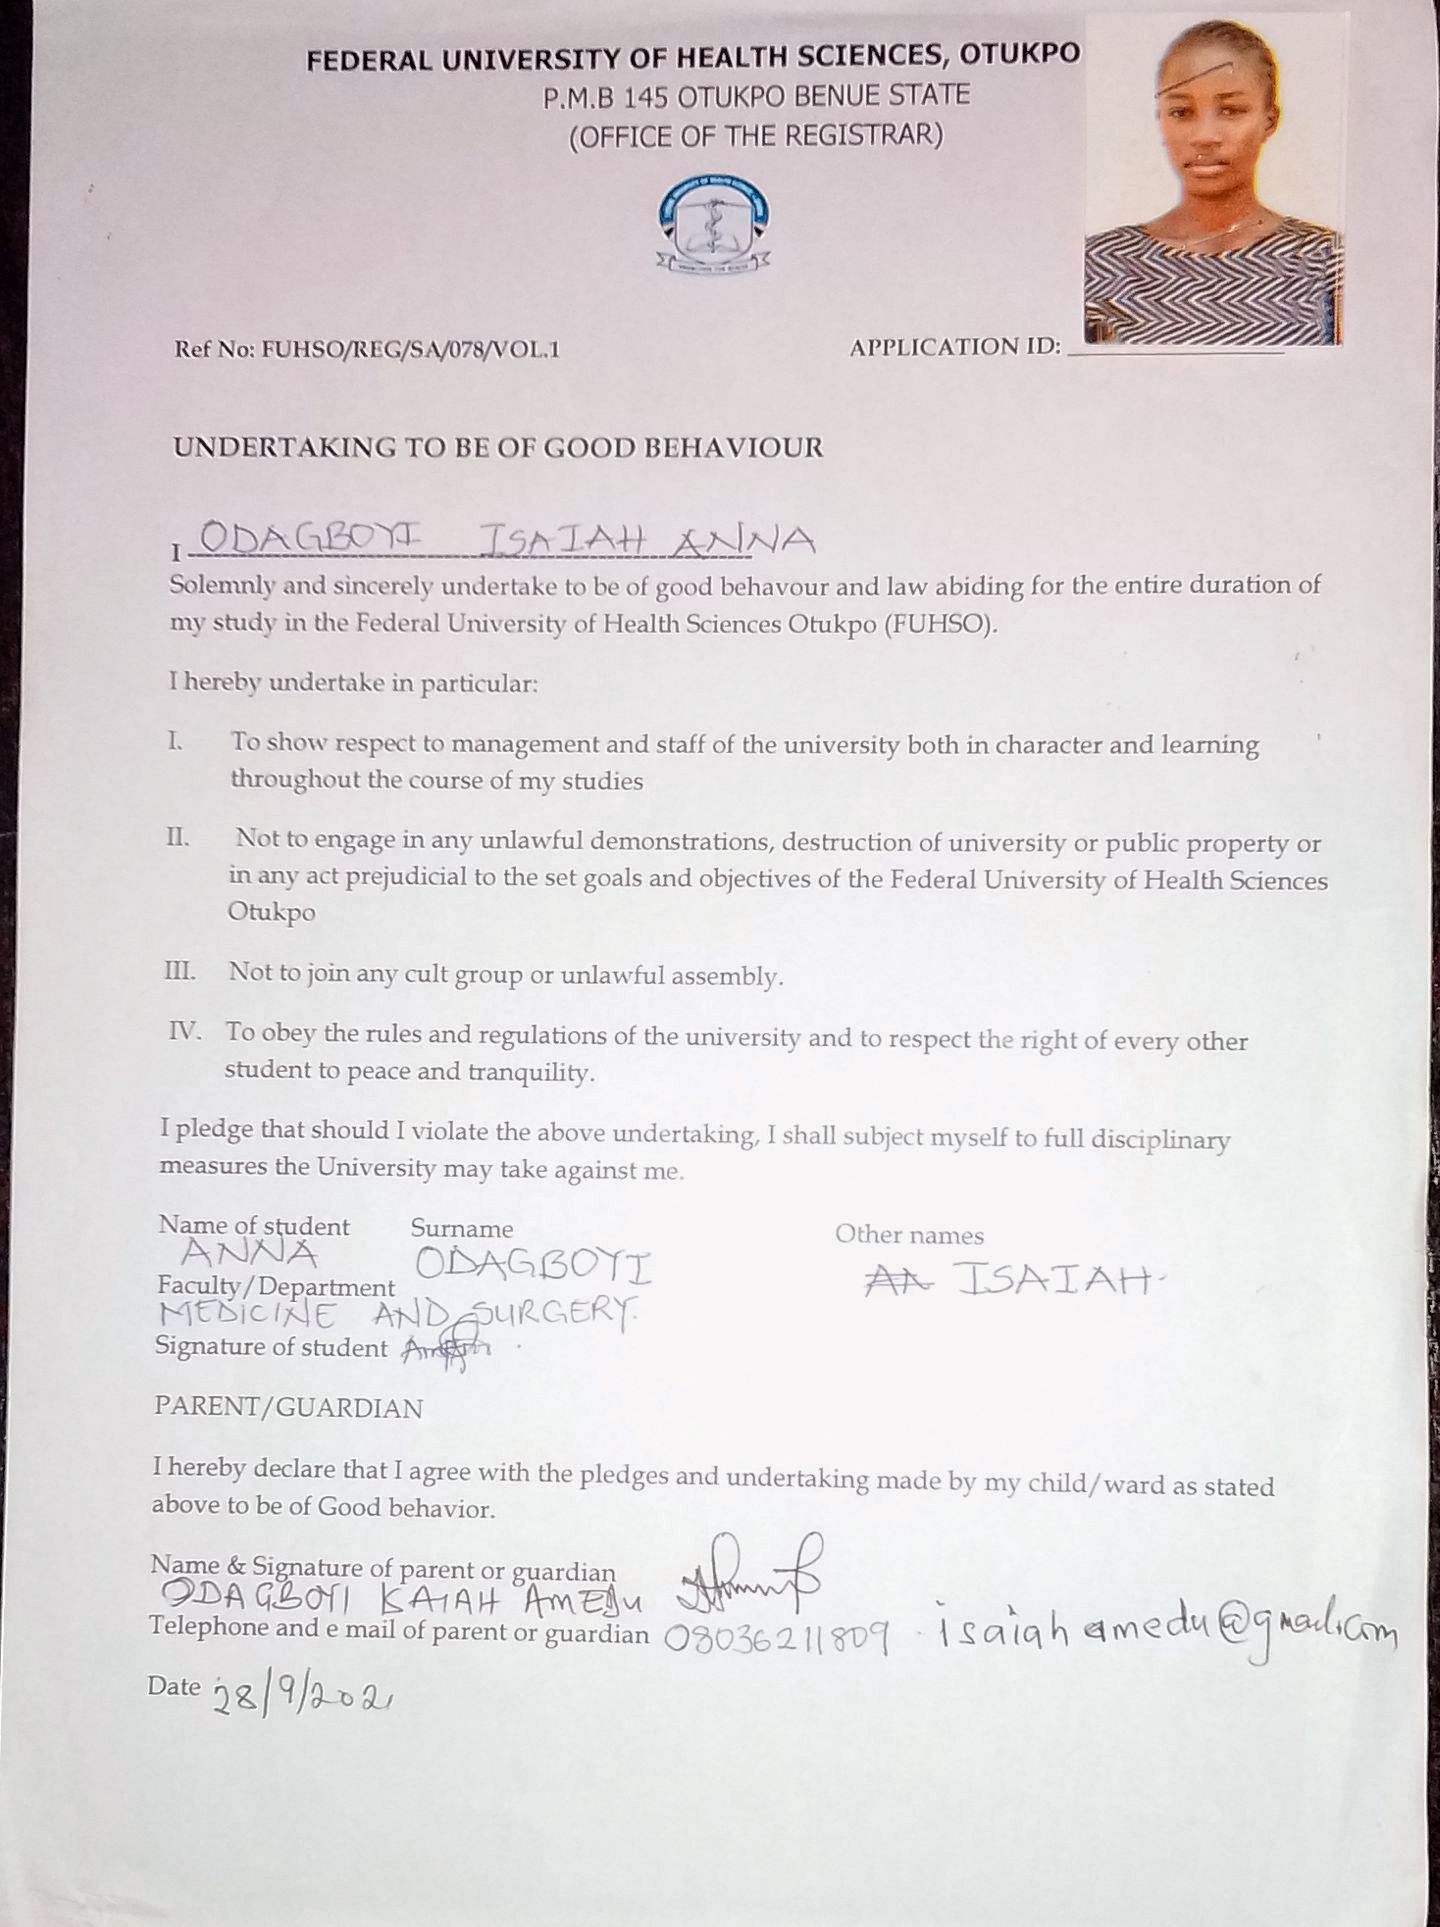 FEDERAL UNIVERSITY OF HEALTH SCIENCES, OTUKPO
P.M.B 145 OTUKPO BENUE STATE
(OFFICE OF THE REGISTRAR)
Ref No: FUHSO/REG/SA/078/VOL.1
APPLICATION ID:
UNDERTAKING TO BE OF GOOD BEHAVIOUR
I ODAGBOYI ISAIAH ANNA
Solemnly and sincerely undertake to be of good behavour and law abiding for the entire duration of
my study in the Federal University of Health Sciences Otukpo (FUHSO).
I hereby undertake in particular:
I. To show respect to management and staff of the university both in character and learning
throughout the course of my studies
II. Not to engage in any unlawful demonstrations, destruction of university or public property or
in any act prejudicial to the set goals and objectives of the Federal University of Health Sciences
Otukpo
III. Not to join any cult group or unlawful assembly.
IV. To obey the rules and regulations of the university and to respect the right of every other
student to peace and tranquility.
I pledge that should I violate the above undertaking, I shall subject myself to full disciplinary
measures the University may take against me.
Name of student Surname Other names
ANNA ODAGBOYI ISAIAH
Faculty/Department
MEDICINE AND SURGERY.
Signature of student
PARENT/GUARDIAN
I hereby declare that I agree with the pledges and undertaking made by my child/ward as stated
above to be of Good behavior.
Name & Signature of parent or guardian
ODAGBOYI ISAIAH AMEDU
Telephone and e mail of parent or guardian 08036211809 isaiahamedu@gmail.com
Date 28/9/2021